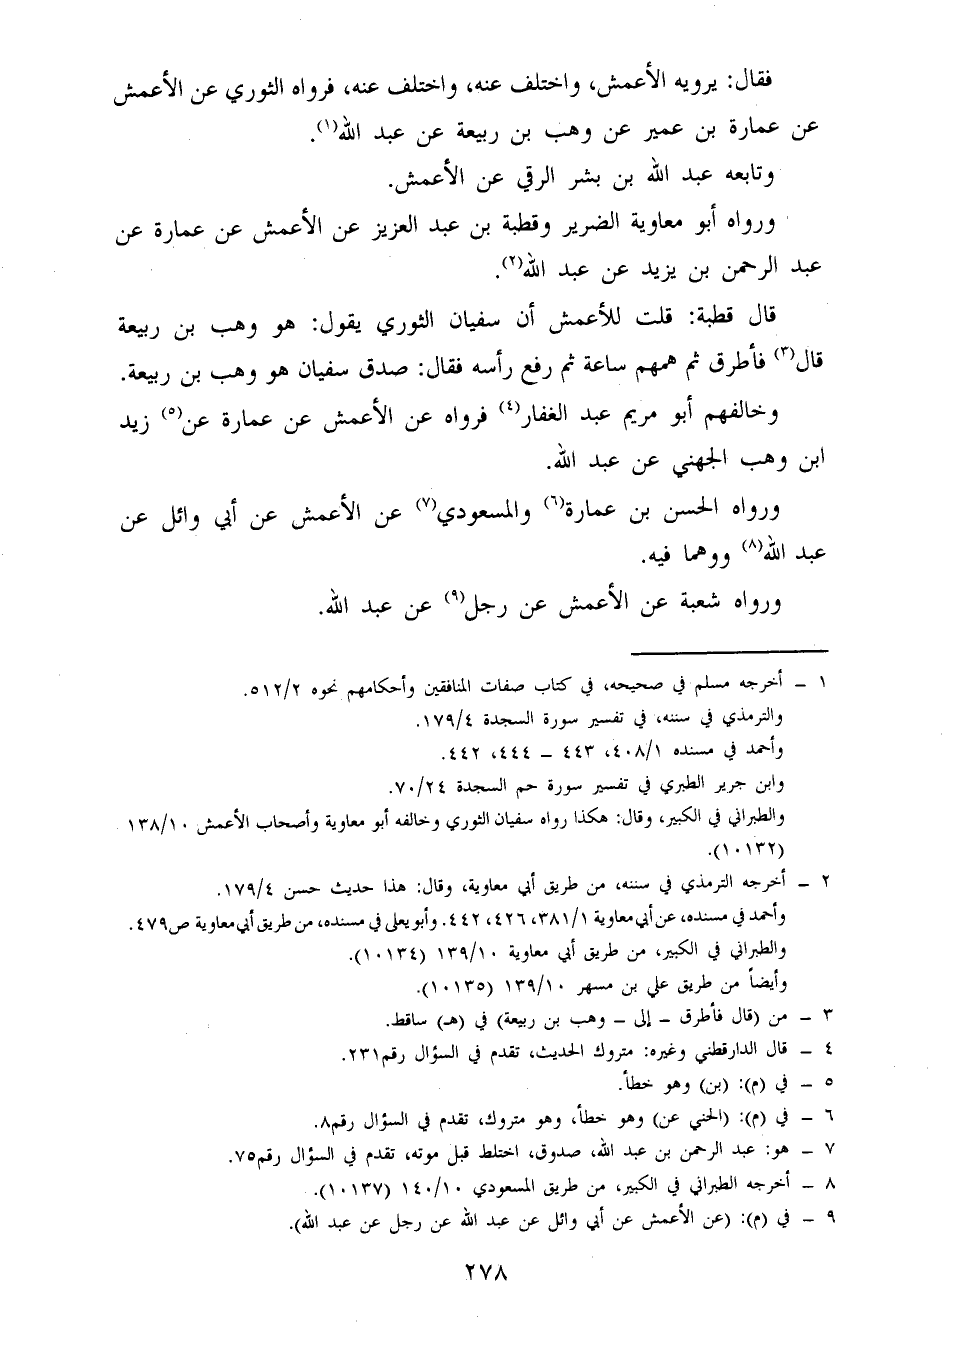 فقال: يرويه الأعمش، واختلف عنه، واختلف عنه، فرواه الثوري عن الأعمش
عن عمارة بن عمير عن وهب بن ربيعة عن عبد الله(١).
وتابعه عبد الله بن بشر الرقي عن الأعمش.
ورواه أبو معاوية الضرير وقطبة بن عبد العزيز عن الأعمش عن عمارة عن
عبد الرحمن بن يزيد عن عبد الله(٢).
قال قطبة: قلت للأعمش أن سفيان الثوري يقول: هو وهب بن ربيعة
قال(٣) فأطرق ثم همهم ساعة ثم رفع رأسه فقال: صدق سفيان هو وهب بن ربيعة.
وخالفهم أبو مريم عبد الغفار(٤) فرواه عن الأعمش عن عمارة عن(٥) زيد
ابن وهب الجهني عن عبد الله.
ورواه الحسن بن عمارة(٦) والمسعودي(٧) عن الأعمش عن أبي وائل عن
عبد الله(٨) ووهما فيه.
ورواه شعبة عن الأعمش عن رجل(٩) عن عبد الله.
١ – أخرجه مسلم في صحيحه، في كتاب صفات المنافقين وأحكامهم نحوه ٥١٢/٢.
والترمذي في سننه، في تفسير سورة السجدة ١٧٩/٤.
وأحمد في مسنده ٤٠٨/١، ٤٤٣ – ٤٤٤، ٤٤٢.
وابن جرير الطبري في تفسير سورة حم السجدة ٧٠/٢٤.
والطبراني في الكبير، وقال: هكذا رواه سفيان الثوري وخالفه أبو معاوية وأصحاب الأعمش ١٣٨/١٠
(١٠١٣٢).
٢ – أخرجه الترمذي في سننه، من طريق أبي معاوية، وقال: هذا حديث حسن ١٧٩/٤.
وأحمد في مسنده، عن أبي معاوية ٣٨١/١، ٤٢٦، ٤٤٢. وأبو يعلى في مسنده، من طريق أبي معاوية ص٤٧٩.
والطبراني في الكبير، من طريق أبي معاوية ١٣٩/١٠ (١٠١٣٤).
وأيضاً من طريق علي بن مسهر ١٣٩/١٠ (١٠١٣٥).
٣ – من (قال فأطرق – إلى – وهب بن ربيعة) في (هـ) ساقط.
٤ – قال الدارقطني وغيره: متروك الحديث، تقدم في السؤال رقم٢٣١.
٥ – في (م): (بن) وهو خطأ.
٦ – في (م): (الحني عن) وهو خطأ، وهو متروك، تقدم في السؤال رقم٨.
٧ – هو: عبد الرحمن بن عبد الله، صدوق، اختلط قبل موته، تقدم في السؤال رقم٧٥.
٨ – أخرجه الطبراني في الكبير، من طريق المسعودي ١٤٠/١٠ (١٠١٣٧).
٩ – في (م): (عن الأعمش عن أبي وائل عن عبد الله عن رجل عن عبد الله).
٢٧٨